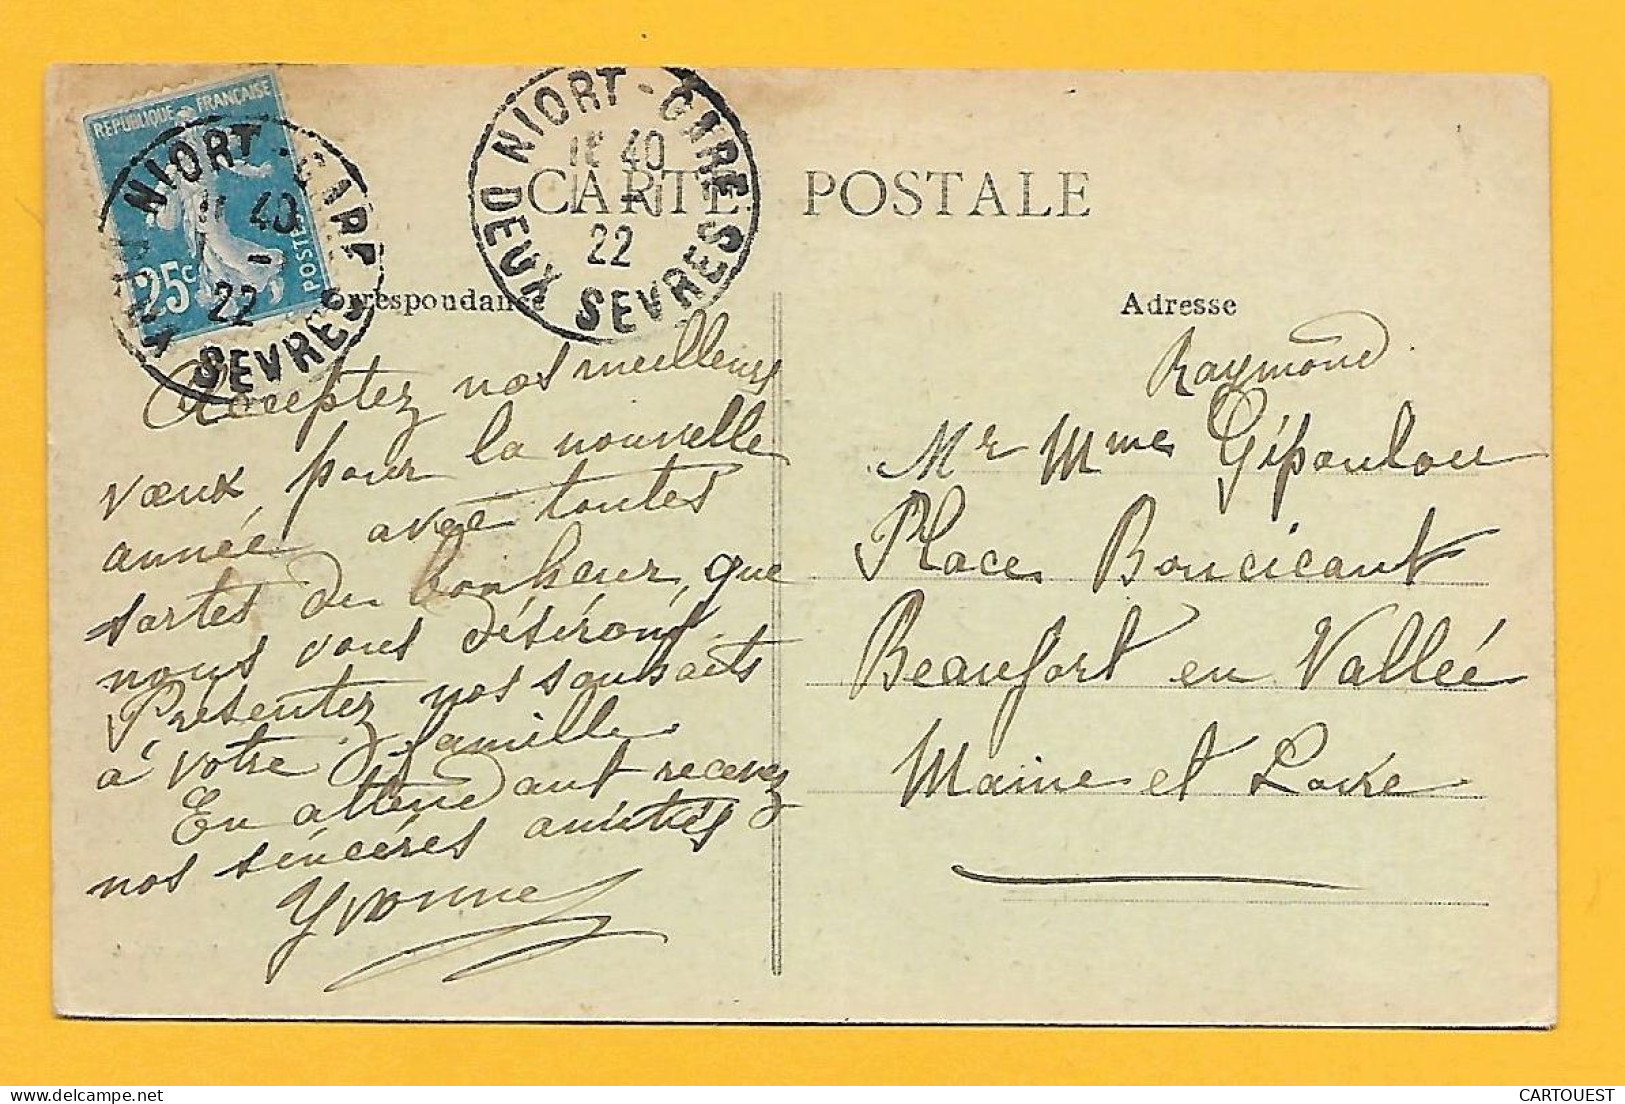 RÉPUBLIQUE FRANÇAISE
25c
POSTES
NIORT-GARE
40
22
DEUX SEVRES
NIORT-GARE
40
22
DEUX SEVRES
CARTE POSTALE
Correspondance
Adresse
Acceptez nos meilleurs
vœux, pour la nouvelle
année, avec toutes
sortes du bonheur, que
nous vous désirons,
Présentez nos souhaits
à votre famille.
En attendant recevez
nos sincéres amitiés
Yvonne
Raymond
Mr Mme Gipoulou
Place Boucicaut
Beaufort en Vallée
Maine et Loire
CARTOUEST